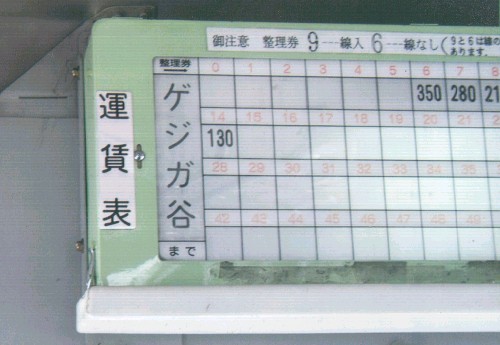 御注意 整理券 9---線入 6---線なし(9と6は線の
あります。
運賃表
整理券 0 1 2 3 4 5 6 7 8
ゲジガ谷
まで
350 280 21
14 15 16 17 18 19 20 21 22
130
28 29 30 31 32 33 34 35 36
42 43 44 45 46 47 48 49